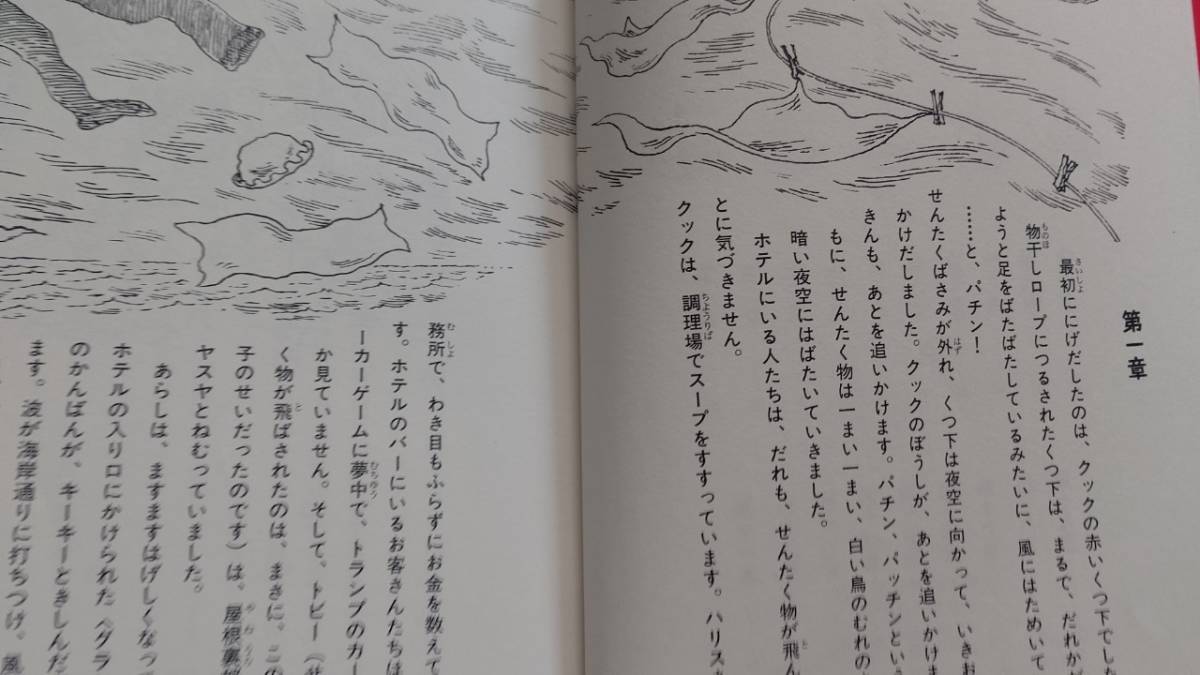 第一章
最初ににげだしたのは、クックの赤いくつ下でした
物干しロープにつるされたくつ下は、まるで、だれかが
ようと足をばたばたしているみたいに、風にはためいて
……と、パチン!
せんたくばさみが外れ、くつ下は夜空に向かって、いきお
かけだしました。クックのぼうしが、あとを追いかけま
きんも、あとを追いかけます。パチン、パッチンという
もに、せんたく物は一まい一まい、白い鳥のむれの
暗い夜空にはばたいていきました。
ホテルにいる人たちは、だれも、せんたく物が飛ん
とに気づきません。
クックは、調理場でスープをすすっています。ハリス
務所で、わき目もふらずにお金を数えて
す。ホテルのバーにいるお客さんたちは
ーカーゲームに夢中で、トランプのカー
か見ていません。そして、トビー(
く物が飛ばされたのは、まさに、この
子のせいだったのです)は、屋根裏
ヤスヤとねむっていました。
あらしは、ますますはげしくなっ
ホテルの入り口にかけられた〈グラ
のかんばんが、キーキーときしんだ
ます。波が海岸通りに打ちつけ、風